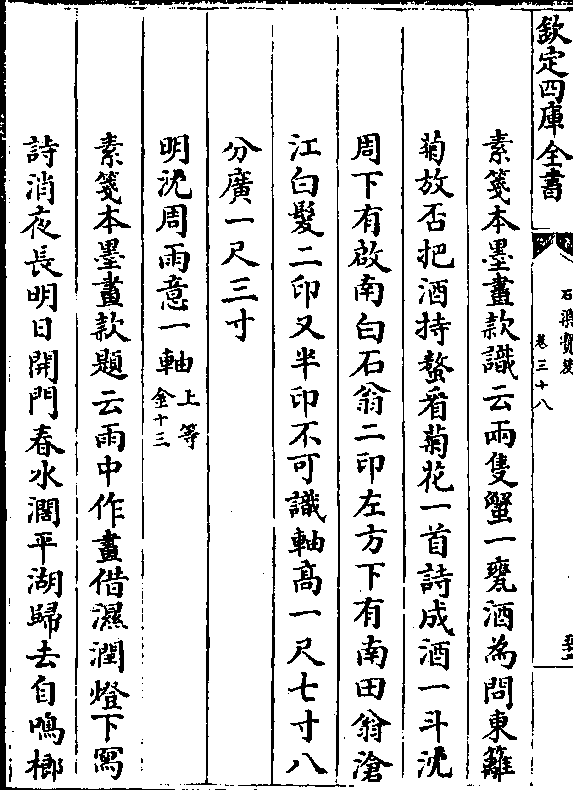 欽定四庫全書
石渠寶笈
卷三十八
素箋本墨畫款識云兩隻蟹一甕酒為問東籬
菊放否把酒持螯看菊花一首詩成酒一斗沈
周下有啟南白石翁二印左方下有南田翁滄
江白髮二印又半印不可識軸高一尺七寸八
分廣一尺三寸
明沈周雨意一軸 上等 金十三
素箋本墨畫款題云雨中作畫借濕潤燈下寫
詩消夜長明日開門春水濶平湖歸去自鳴榔